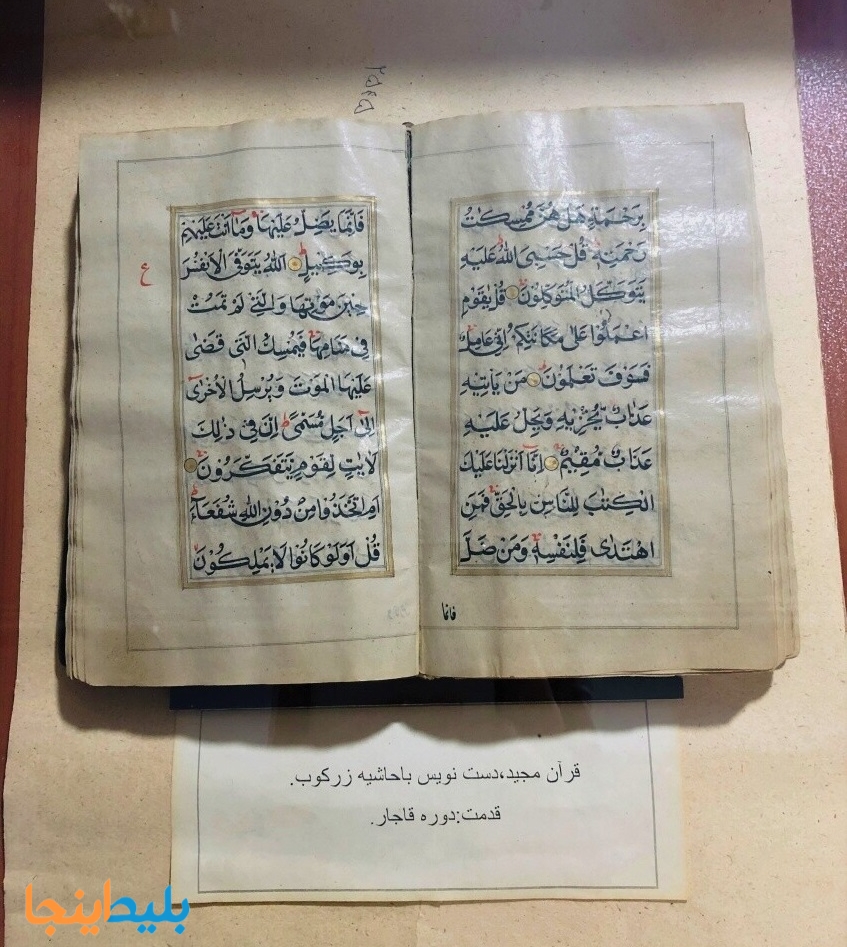 ۲۵۶۵
بِرَحْمَةٍ هَلْ هُنَّ مُمْسِكٰتُ
رَحْمَتِهٖ قُلْ حَسْبِیَ اللّٰهُ عَلَیْهِ
یَتَوَكَّلُ الْمُتَوَكِّلُوْنَ قُلْ یٰقَوْمِ
اعْمَلُوْا عَلٰی مَكَانَتِكُمْ اِنِّیْ عَامِلٌ
فَسَوْفَ تَعْلَمُوْنَ مَنْ یَاْتِیْهِ
عَذَابٌ یُّخْزِیْهِ وَیَحِلُّ عَلَیْهِ
عَذَابٌ مُّقِیْمٌ اِنَّا اَنْزَلْنَا عَلَیْكَ
الْكِتٰبَ لِلنَّاسِ بِالْحَقِّ فَمَنِ
اهْتَدٰی فَلِنَفْسِهٖ وَمَنْ ضَلَّ
فانما
فَاِنَّمَا یَضِلُّ عَلَیْهَا وَمَا اَنْتَ عَلَیْهِمْ
بِوَكِیْلٍ اَللّٰهُ یَتَوَفَّی الْاَنْفُسَ
حِیْنَ مَوْتِهَا وَالَّتِیْ لَمْ تَمُتْ
فِیْ مَنَامِهَا فَیُمْسِكُ الَّتِیْ قَضٰی
عَلَیْهَا الْمَوْتَ وَیُرْسِلُ الْاُخْرٰی
اِلٰی اَجَلٍ مُّسَمًّی اِنَّ فِیْ ذٰلِكَ
لَاٰیٰتٍ لِقَوْمٍ یَتَفَكَّرُوْنَ
اَمِ اتَّخَذُوْا مِنْ دُوْنِ اللّٰهِ شُفَعَآءَ
قُلْ اَوَلَوْ كَانُوْا لَا یَمْلِكُوْنَ
ع
قرآن مجید،دست نویس باحاشیه زرکوب.
قدمت:دوره قاجار.
بلیطاینجا